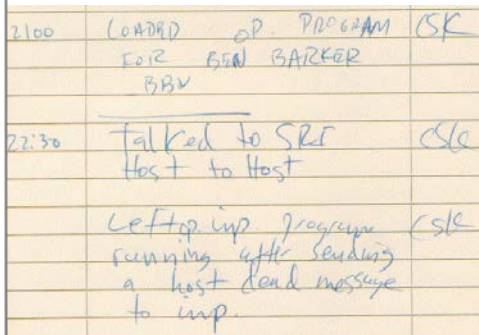 2100 LOADED OP. PROGRAM CSK
FOR BEN BARKER
BBV
22:30 Talked to SRI CSK
Host to Host
Left op. imp. program CSK
running after sending
a host dead message
to imp.